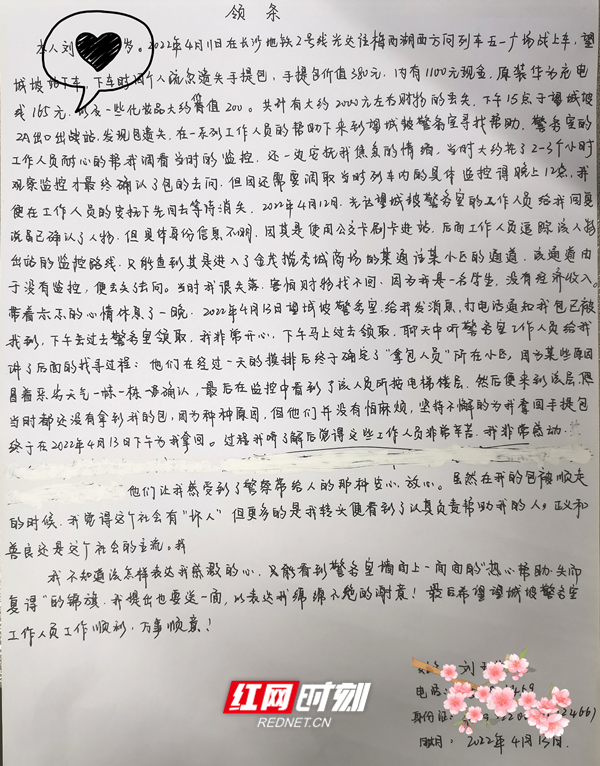 领条
本人刘 岁。2022年4月11日在长沙地铁2号线光达往梅西湖西方向列车五一广场战上车,望
城坡站下车,下车时因个人疏忽遗失手提包,手提包价值380元,内有1100元现金,原装华为充电
线165元 一些化妆品大约价值200。共计有大约2000元左右财物的丢失。下午15点于望城坡
2A出口出战站,发现包遗失,在一系列工作人员的帮助下来到望城坡警务室寻找帮助。警务室的
工作人员耐心的帮我调看当时的监控,还一边安抚我焦急的情绪,当时大约花了2-3个小时
观察监控才最终确认了包的去向。但因还需要调取当时列车内的具体监控得晚上12点,我
便在工作人员的安抚下先回去等待消失。2022年4月12日,光达望城坡警务室的工作人员给我回复
说是已确认了人物,但具体身份信息不明,因其是使用公交卡刷卡进站,后面工作人员追踪该人物
出站的监控路线,只能查到其是进入了金茂揽秀城商场的某通话某小区的通道,该通道由
于没有监控,便丢失去向。当时我很失落,害怕财物找不回,因为我是一名学生,没有经济收入。
带着忐忑的心情休息了一晚。2022年4月13日望城坡警务室给我发消息,打电话通知我包已被
找到,下午去过去警务室领取,我非常开心,下午马上过去领取,聊天中听警务室工作人员给我
讲了后面的找寻过程:他们在经过一天的摸排后终于确定了“拿包人员”所在小区,因为某些原因
冒着恶劣天气一栋一栋一层确认,最后在监控中看到了该人员所按电梯楼层,然后便来到该层,但
当时都还没有拿到我的包,因为种种原因,但他们并没有怕麻烦,坚持不懈的为我拿回手提包
终于在2022年4月13日下午为我拿回。过程我听了解后觉得这些工作人员非常辛苦,我非常感动。
他们让我感受到了警察带给人的那种安心、放心。虽然在我的包被顺走
的时候,我觉得这个社会有“坏人”但更多的是我转头便看到了认真负责帮助我的人,正义和
善良还是这个社会的主流。我
我不知道该怎样表达我感激的心,只能看到警务室墙面上一面面的“热心帮助·失而
复得”的锦旗,我提出也要送一面,以表达我绵绵不绝的谢意!最后希望望城坡警务室
工作人员工作顺利,万事顺意!
刘
电话:
身份证: 2466)
日期:2022年4月13日.
红网时刻
REDNET.CN